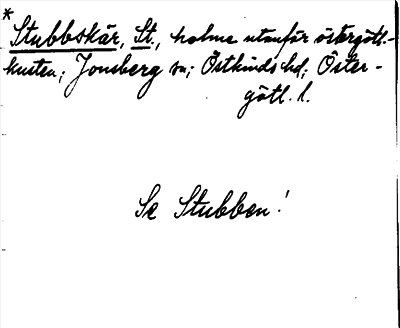 * Stubbskär, St., holme utanför östergötl.-
kusten; Jonsberg sn; Östkinds hd; Öster-
götl. l.
Se Stubben!